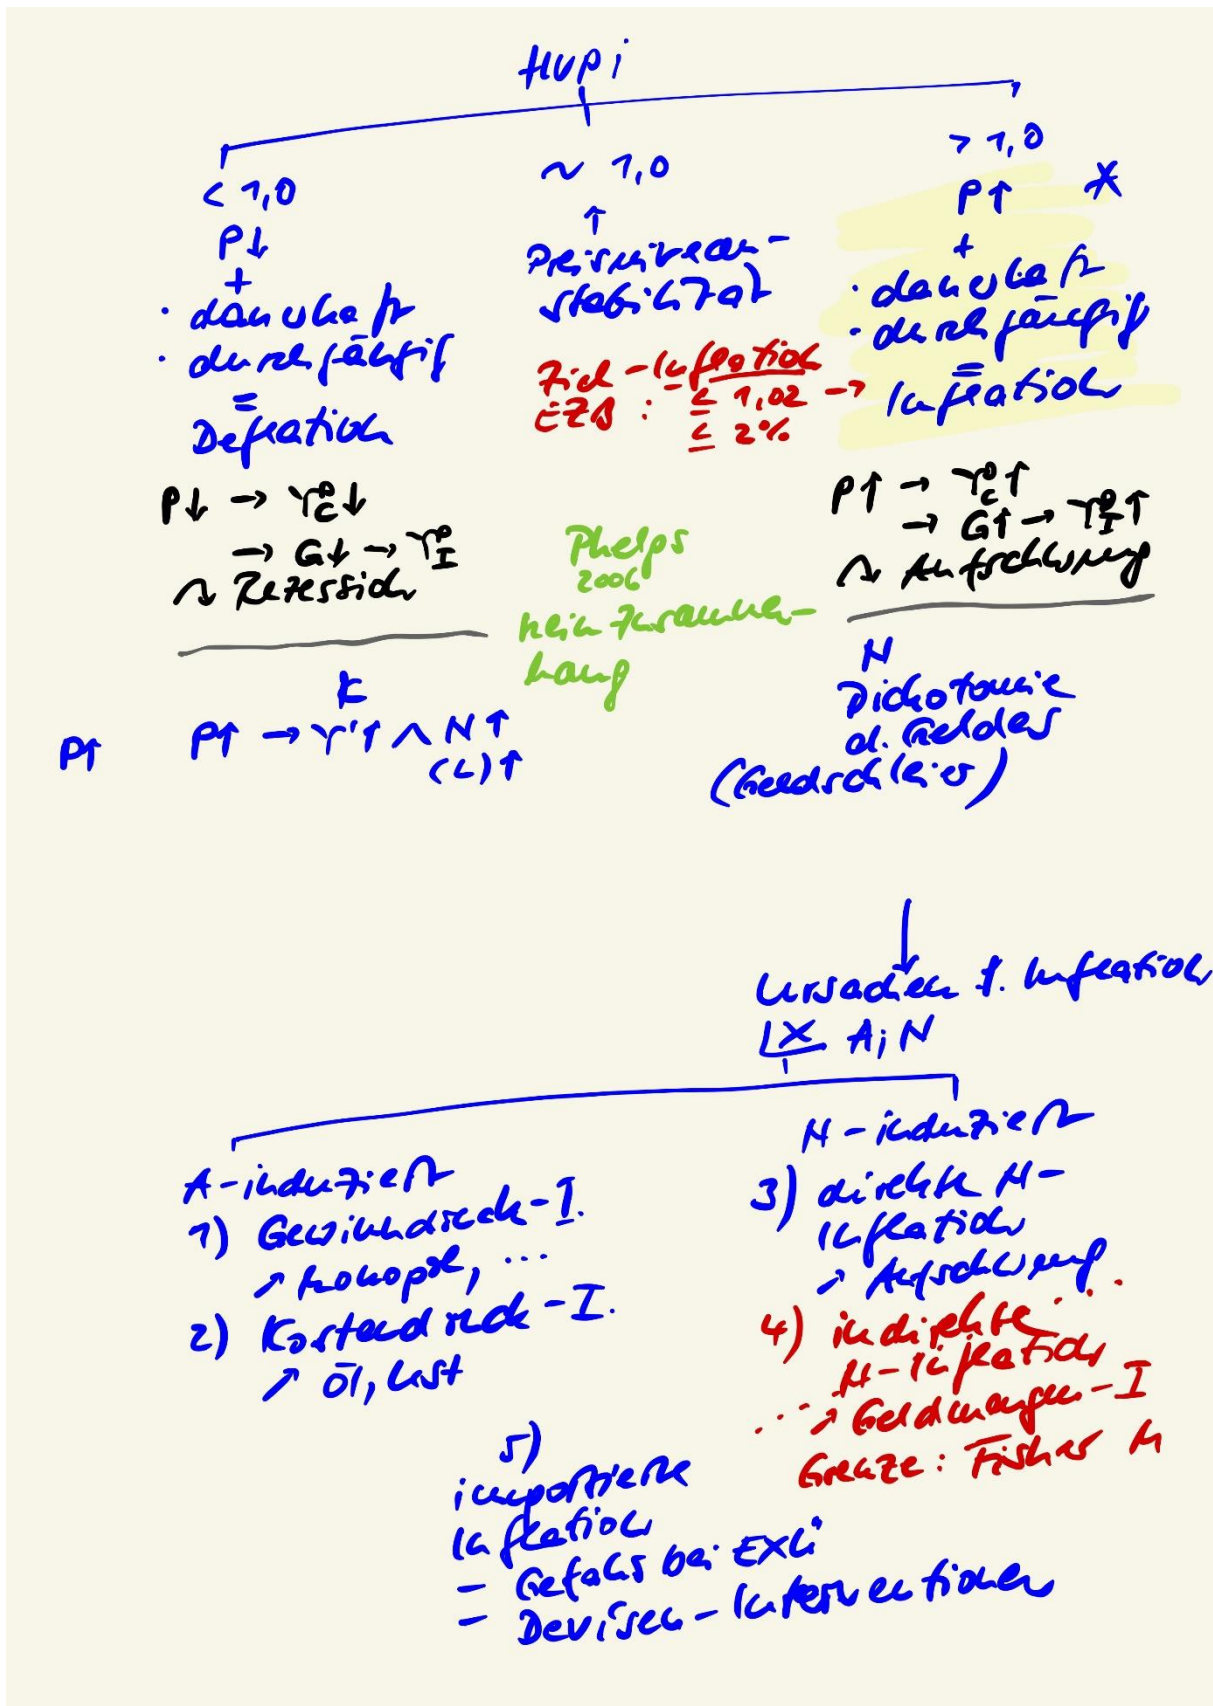 HVPi
< 1,0
P↓
+
· dauerhaft
· durchgängig
=
Deflation
P↓ → Y_C^D↓
→ G↓ → Y_I^D
↷ Rezession
~ 1,0
↑
Preisniveau-
stabilität
Ziel-Inflation
EZB : ≤ 1,02 →
≤ 2%
Phelps
2006
kein Zusammen-
hang
> 1,0
P↑ *
+
· dauerhaft
· durchgängig
=
Inflation
P↑ → Y_C^D↑
→ G↑ → Y_I^D↑
↷ Aufschwung
K
P↑ P↑ → Y^r↑ ∧ N↑
(L)↑
N
Dichotomie
d. Geldes
(Geldschleier)
↓
Ursachen f. Inflation
X A; N
A-induziert
1) Gewinndruck-I.
↗ Monopol, ...
2) Kostendruck-I.
↗ Öl,
N-induziert
3) direkte N-
Inflation
↗ Aufschwung
4) indirekte
N-Inflation
↗ Geldmengen-I
Grenze : Fisher M
5)
importierte
Inflation
- Gefahr bei
- Devisen-Interventionen